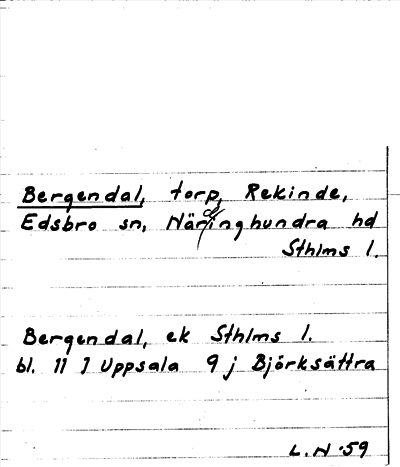 Bergendal, torp, Rekinde,
Edsbro sn, Näringhundra hd
Sthlms l.
Bergendal, ek Sthlms l.
bl. 11 I Uppsala 9 j Björksättra
L. N. 59